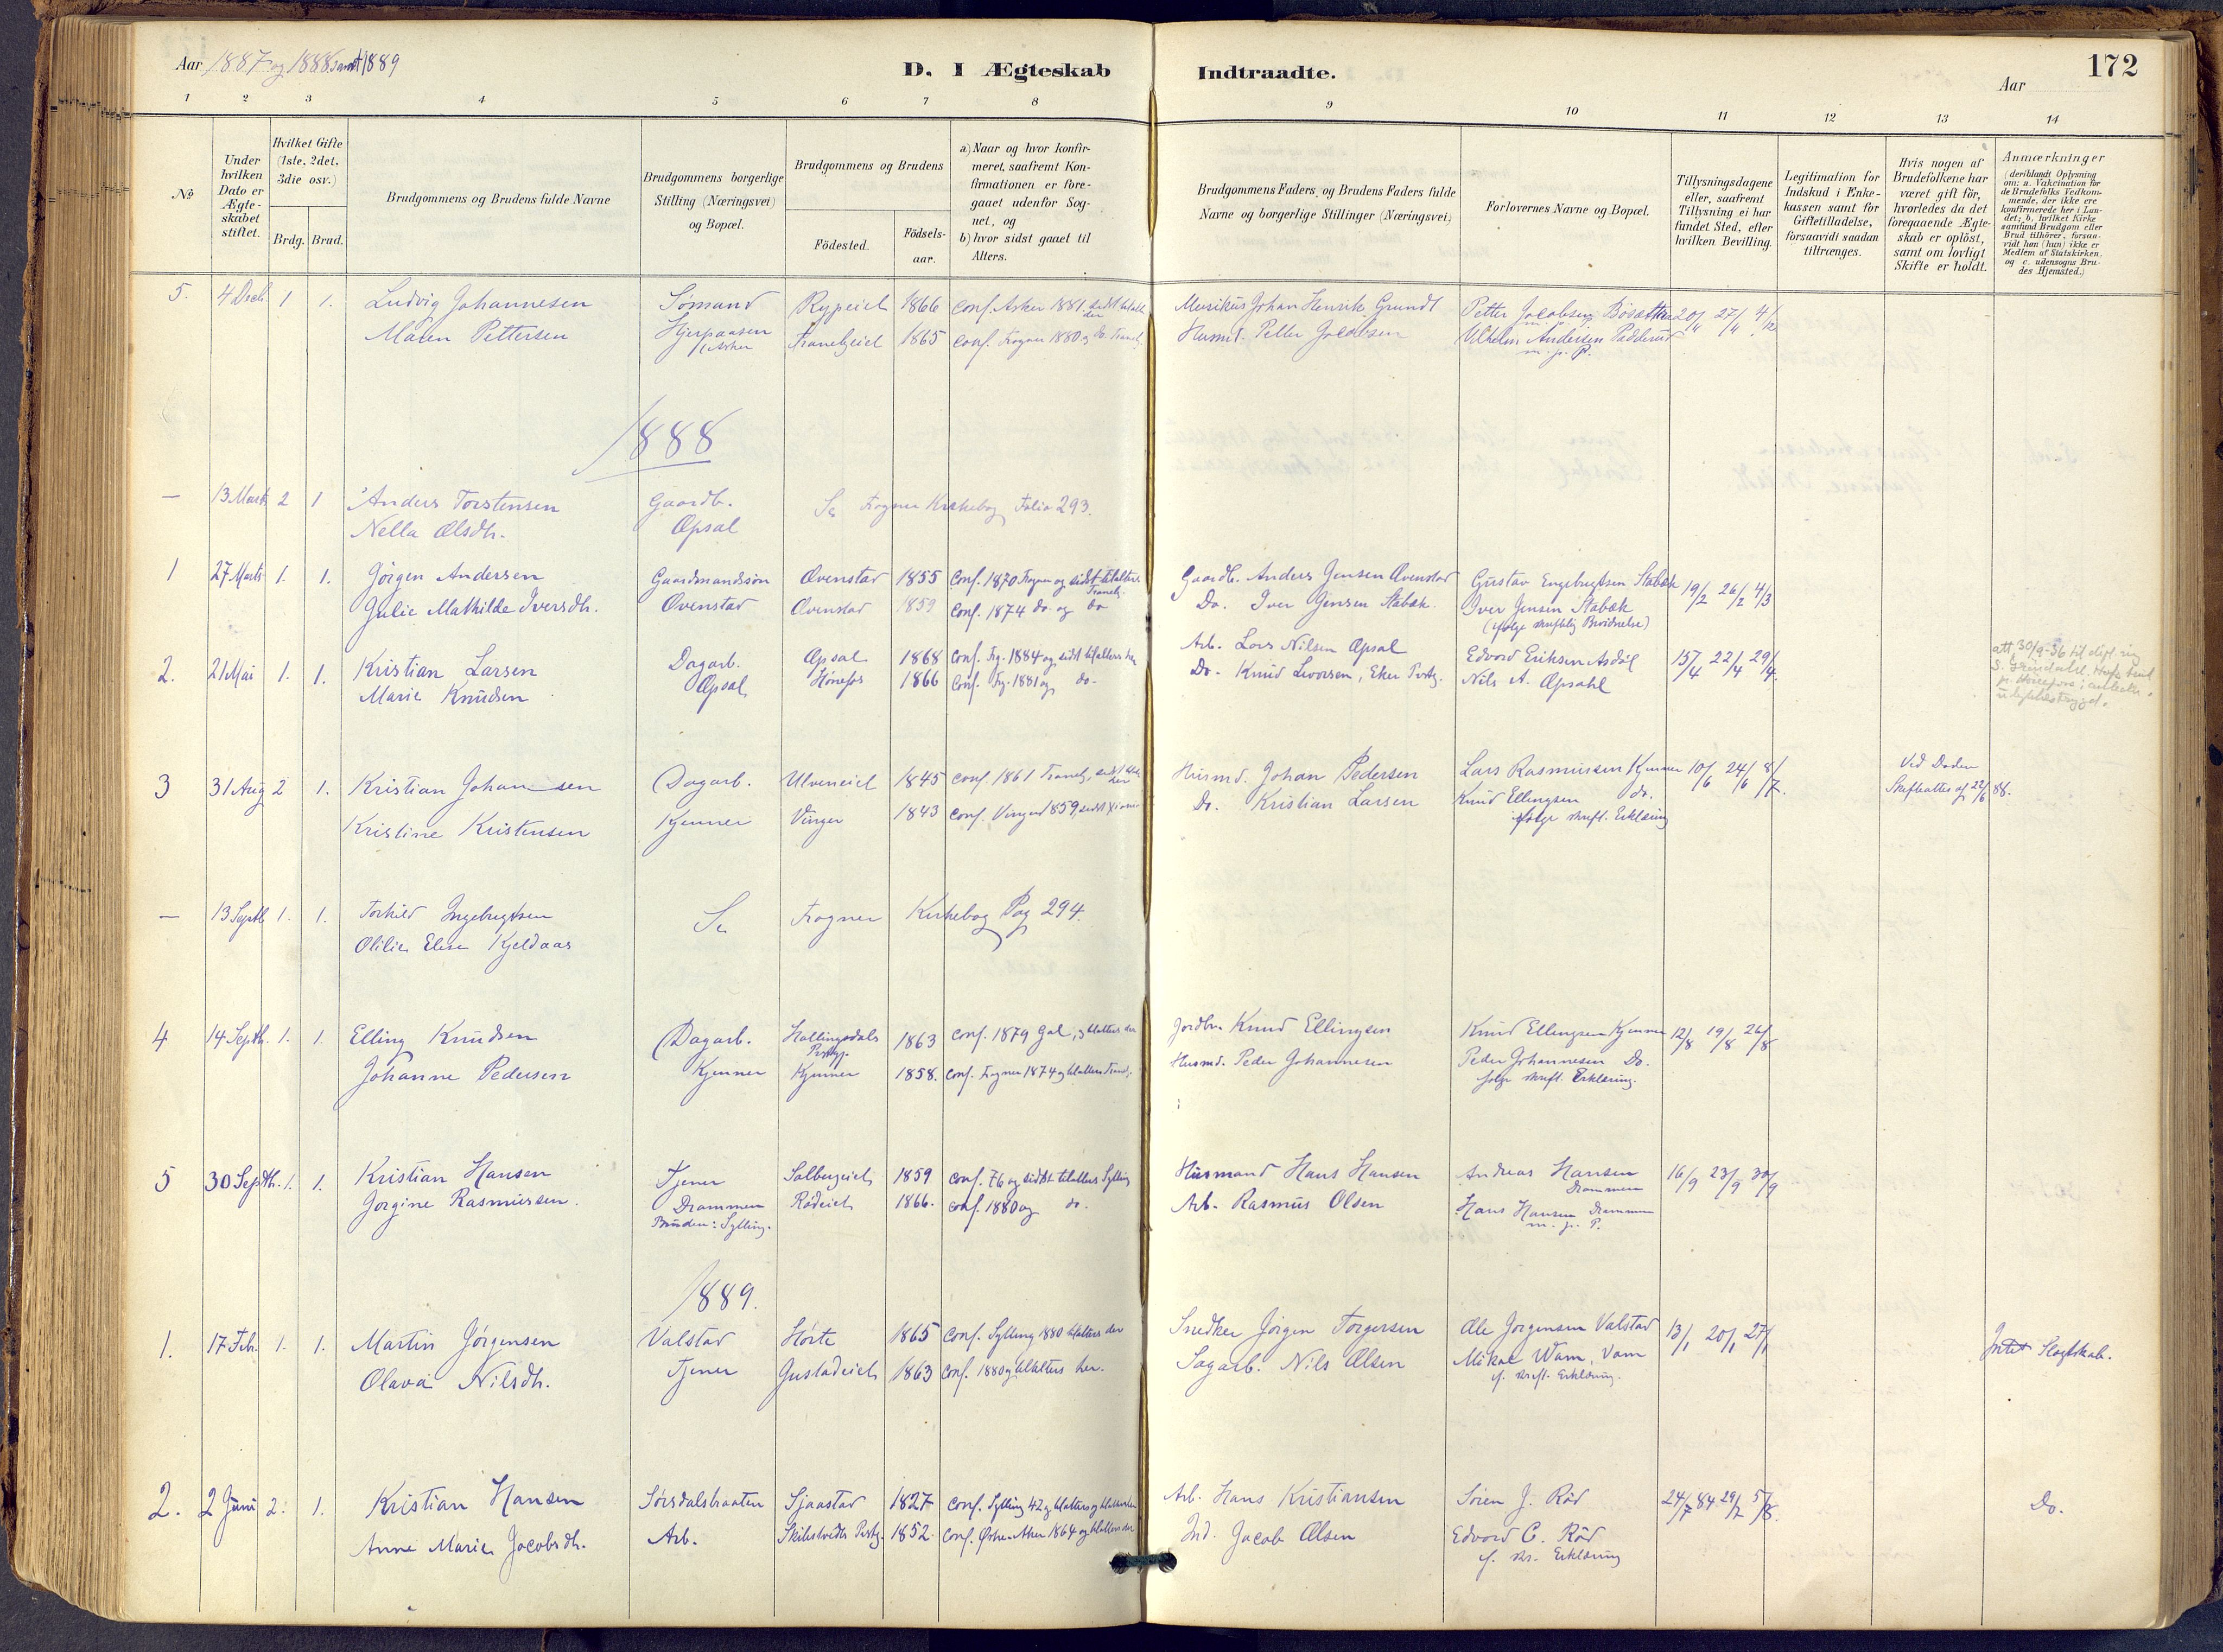 Aar 1887 og 1888 samt 1889
D. I Ægteskab Indtraadte.
Aar
172
1 2 3 4 5 6 7 8 9 10 11 12 13 14
No
Under hvilken Dato er Ægte-skabet stiftet.
Hvilket Gifte (1ste, 2det, 3die osv.)
Brdg. Brud.
Brudgommens og Brudens fulde Navne
Brudgommens borgerlige Stilling (Næringsvei) og Bopæl.
Brudgommens og Brudens
Födested.
Födsels-aar.
a) Naar og hvor konfir-meret, saafremt Kon-firmationen er fore-gaaet udenfor Sog-net, og
b) hvor sidst gaaet til Alters.
Brudgommens Faders, og Brudens Faders fulde Navne og borgerlige Stillinger (Næringsvei)
Forlovernes Navne og Bopæl.
Tillysningsdagene eller, saafremt Tillysning ei har fundet Sted, efter hvilken Bevilling.
Legitimation for Indskud i Enke-kassen samt for Giftetilladelse, forsaavidt saadan tiltrænges.
Hvis nogen af Brudefolkene har været gift för, hvorledes da det foregaaende Ægte-skab er oplöst, samt om lovligt Skifte er holdt.
Anmærkninger (deriblandt Oplysning om: a. Vakcination for de Brudefolks Vedkom-mende, der ikke ere konfirmerede her i Lan-det; b. hvilket Kirke samfund Brudgom eller Brud tilhörer, forsaa-vidt han (hun) ikke er Medlem af Statskirken, og c. udensogns Bru-des Hjemsted.)
5. 4 Decb. 1 1. Ludvig Johannesen Sømand Rypeiet 1866 Conf. Asker 1881, sidst Musikus Johan Henrik Grundt Petter Jacobsen Bösætter 20/11 27/11 4/12
Maren Pettersen Hjerpaasen i Asker Tranebyeiet 1865 conf. Frogner 1880 og do Husmd. Petter Jacobsen Vilhelm Andersen Padderud
m. p. P.
1888
— 13 Marts 2 1 Anders Torstensen Gaardb. Se Frogner Kirkebog Folio 293.
Nella Olsdtr. Opsal
1 27 Marts 1. 1. Jörgen Andersen Gaardmandssön Ovenstad 1855 Conf. 1870 Frogner og sidst tilalters Gaardb. Anders Jensen Ovenstad Gustav Engebregtsen Stabæk 19/2 26/2 4/3
Julie Mathilde Iversdtr. Ovenstad Ovenstad 1859 Conf. 1874 do. og do Do. Iver Jensen Stabæk. Iver Jensen Stabæk
(ifølge skriftlig Bevidnelse)
2. 21 Mai 1. 1. Kristian Larsen Dagarb. Opsal 1868 Conf. Frg. 1884 og sidst til alters her Arb. Lars Nilsen Opsal Edvard Eriksen Asdöl 15/4 22/4 29/4
Marie Knudsen Opsal Hönefos 1866 Conf. Frg. 1881 og do. Do. Knud Evorsen, Eker Prstg. Nils A. Opsahl
att. 30/9-36 til
3 31 Aug 2 1. Kristian Johansen Dagarb. Ulveneiet 1845 conf. 1861 Traneby, sidst Husmd. Johan Pedersen Lars Rasmussen Kjenner 10/6 24/6 8/7 Ved Döden
Kristine Kristensen Kjenner Vinger 1843 Conf. Vinger 1859, sidst Do. Kristian Larsen Knud Ellingsen do. Skifteattest af 22/6 88.
ifølge skriftl. Erklæring
— 13 Septb 1. 1. Torkild Ingebregtsen Se Frogner Kirkebog Pag 294.
Otilie Elise Kjeldaas
4 14 Septb. 1. 1. Elling Knudsen Dagarb. Hallingsdals Prstgj. 1863 Conf. 1879 Gol, og tilalters der Jordbr. Knud Ellingsen Knud Ellingsen Kjenner 12/8 19/8 26/8
Johanne Pedersen Kjenner Kjenner 1858. Conf. Frogner 1874 og tilalters Husmd. Peder Johannesen Peder Johannesen Do.
ifølge skriftl. Erklæring.
5 30 Septbr. 1. 1. Kristian Hansen Tjener Solbergeiet 1859 Conf. 76 og sidst tilalters Sylling Husmand Hans Hansen Andreas Hansen Drammen 16/9 23/9 30/9
Gorgine Rasmussen. Drammen Rödeiet 1866. Conf. 1880 og do. Arb. Rasmus Olsen Hans Hansen Drammen
Bruden: Sylling. m. p. P.
1889.
1. 17 Feb. 1. 1. Martin Jörgensen Valstad Hörte 1865 Conf. Sylling 1880 tilalters der Snedker Jörgen Torgersen Ole Jörgensen Valstad 13/1 20/1 27/1 Intet Slegtskab.
Olava Nilsdtr. Tjener Gustadeiet 1863 Conf. 1880 og tilalters her. Sagarb. Nils Olsen Mikal Wam, Vam
if. skriftl. Erklæring.
2. 2 Juni 2. 1. Kristian Hansen Sörsdalsbraaten Sjaastad 1827 Conf. Sylling 42 og tilalters Arb. Hans Kristiansen Sören J. Röd 24/7 84 Do.
Anne Marie Jacobsdtr. Arb. Skibstvedts Prstg. 1852. Conf. Østre Aker 1864 og tilalters der Ind. Jacob Olsen Edvard C. Röd
if. skr. Erklæring